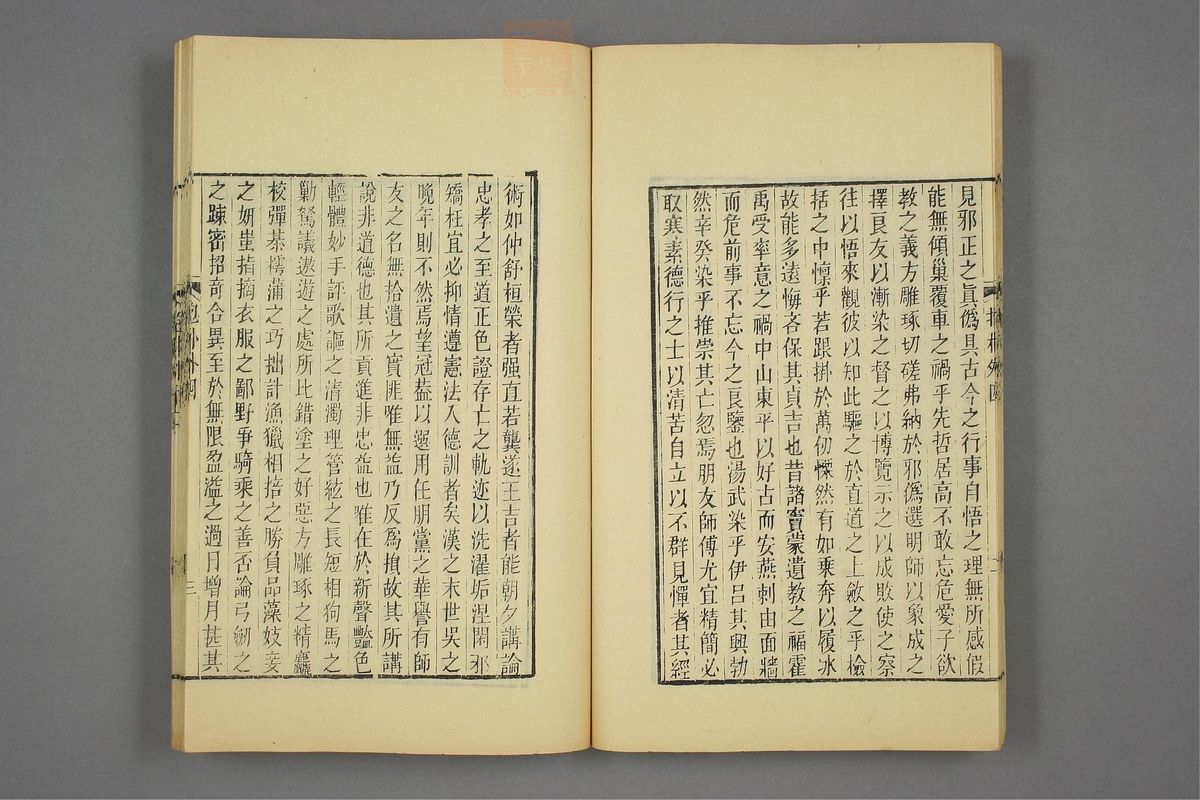 見邪正之眞僞具古今之行事自悟之理無所感假
能無傾巢覆車之禍乎先哲居高不敢忘危愛子欲
教之義方雕琢切磋弗納於邪僞選明師以象成之
擇良友以漸染之督之以博覽示之以成敗使之察
往以悟來觀彼以知此驅之於直道之上斂之乎檢
括之中懍乎若跟掛於萬仞慄然有如乘奔以履冰
故能多遠悔吝保其貞吉也昔諸竇蒙遺教之福霍
禹受率意之禍中山東平以好古而安燕剌由面牆
而危前事不忘今之良鑒也湯武染乎伊呂其興勃
然辛癸染乎推崇其亡忽焉朋友師傅尤宜精簡必
取寒素德行之士以清苦自立以不羣見憚者其經
術如仲舒桓榮者强直若龔遂王吉者能朝夕講論
忠孝之至道正色證存亡之軌迹以洗濯垢涅閑邪
矯枉宜必抑情遵憲法入德訓者矣漢之末世吳之
晚年則不然焉望冠葢以選用任朋黨之華譽有師
友之名無拾遺之實匪唯無益乃反爲損故其所講
說非道德也其所貢進非忠益也唯在於新聲豔色
輕體妙手評歌謳之清濁理管絃之長短相狗馬之
勦駑議遨遊之處所比錯塗之好惡方雕琢之精麤
校彈棊樗蒲之巧拙計漁獵相掊之勝負品藻妓妾
之妍蚩指摘衣服之鄙野爭騎乘之善否論弓劒之
之踈密招奇合異至於無限盈溢之過日增月甚其
三